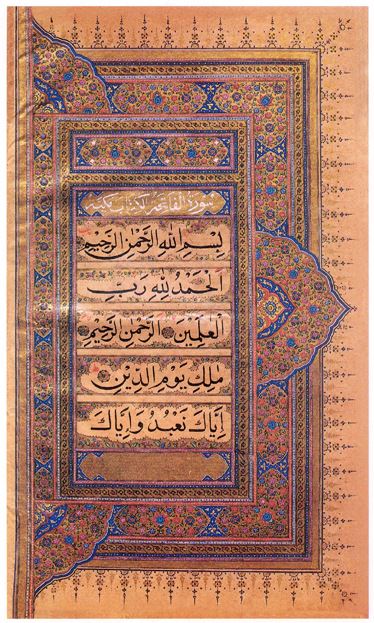 سورة الفاتحة الكتاب مكية
بِسْمِ اللهِ الرَّحْمٰنِ الرَّحِيْمِ
اَلْحَمْدُ لِلّٰهِ رَبِّ
الْعٰلَمِيْنَ الرَّحْمٰنِ الرَّحِيْمِ
مٰلِكِ يَوْمِ الدِّيْنِ
اِيَّاكَ نَعْبُدُ وَاِيَّاكَ